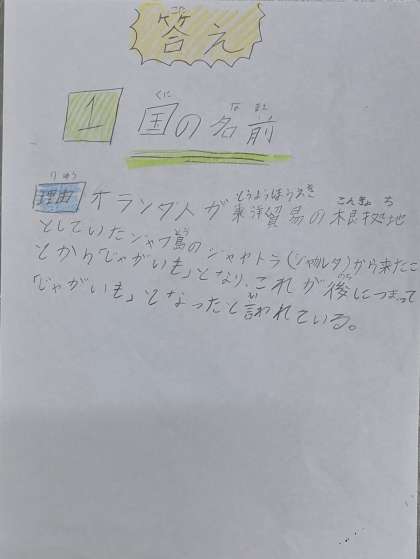 答え
1 国の名前
理由 オランダ人が東洋貿易の根拠地
としていたジャワ島のジャヤトラ(ジャカルタ)から来たこ
とから「じゃがいも」となり、これが後につまって
「じゃがいも」となったと言われている。